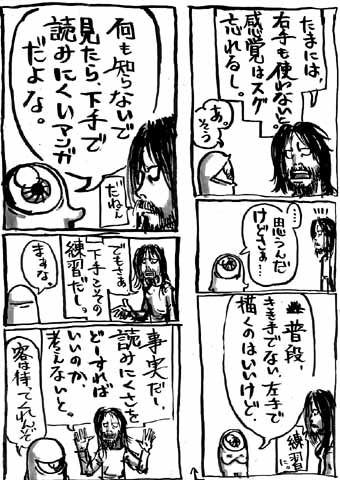 たまには、
右手も使わないと。
感覚はスグ
忘れるし。
あ。
そう
…。
…思うんだ
けどさぁ…
普段、
きき手でない、左手で
描くのはいいけど、
練習
に。
何も知らないで
見たら、下手で
読みにくいマンガ
だよな。
だねぇ
でもさぁ、
下手こその
練習だし。
ますな。
事実だし、
読みにくさを
どーすれば
いいのか、
考えないと。
客は待ってくれんぞ